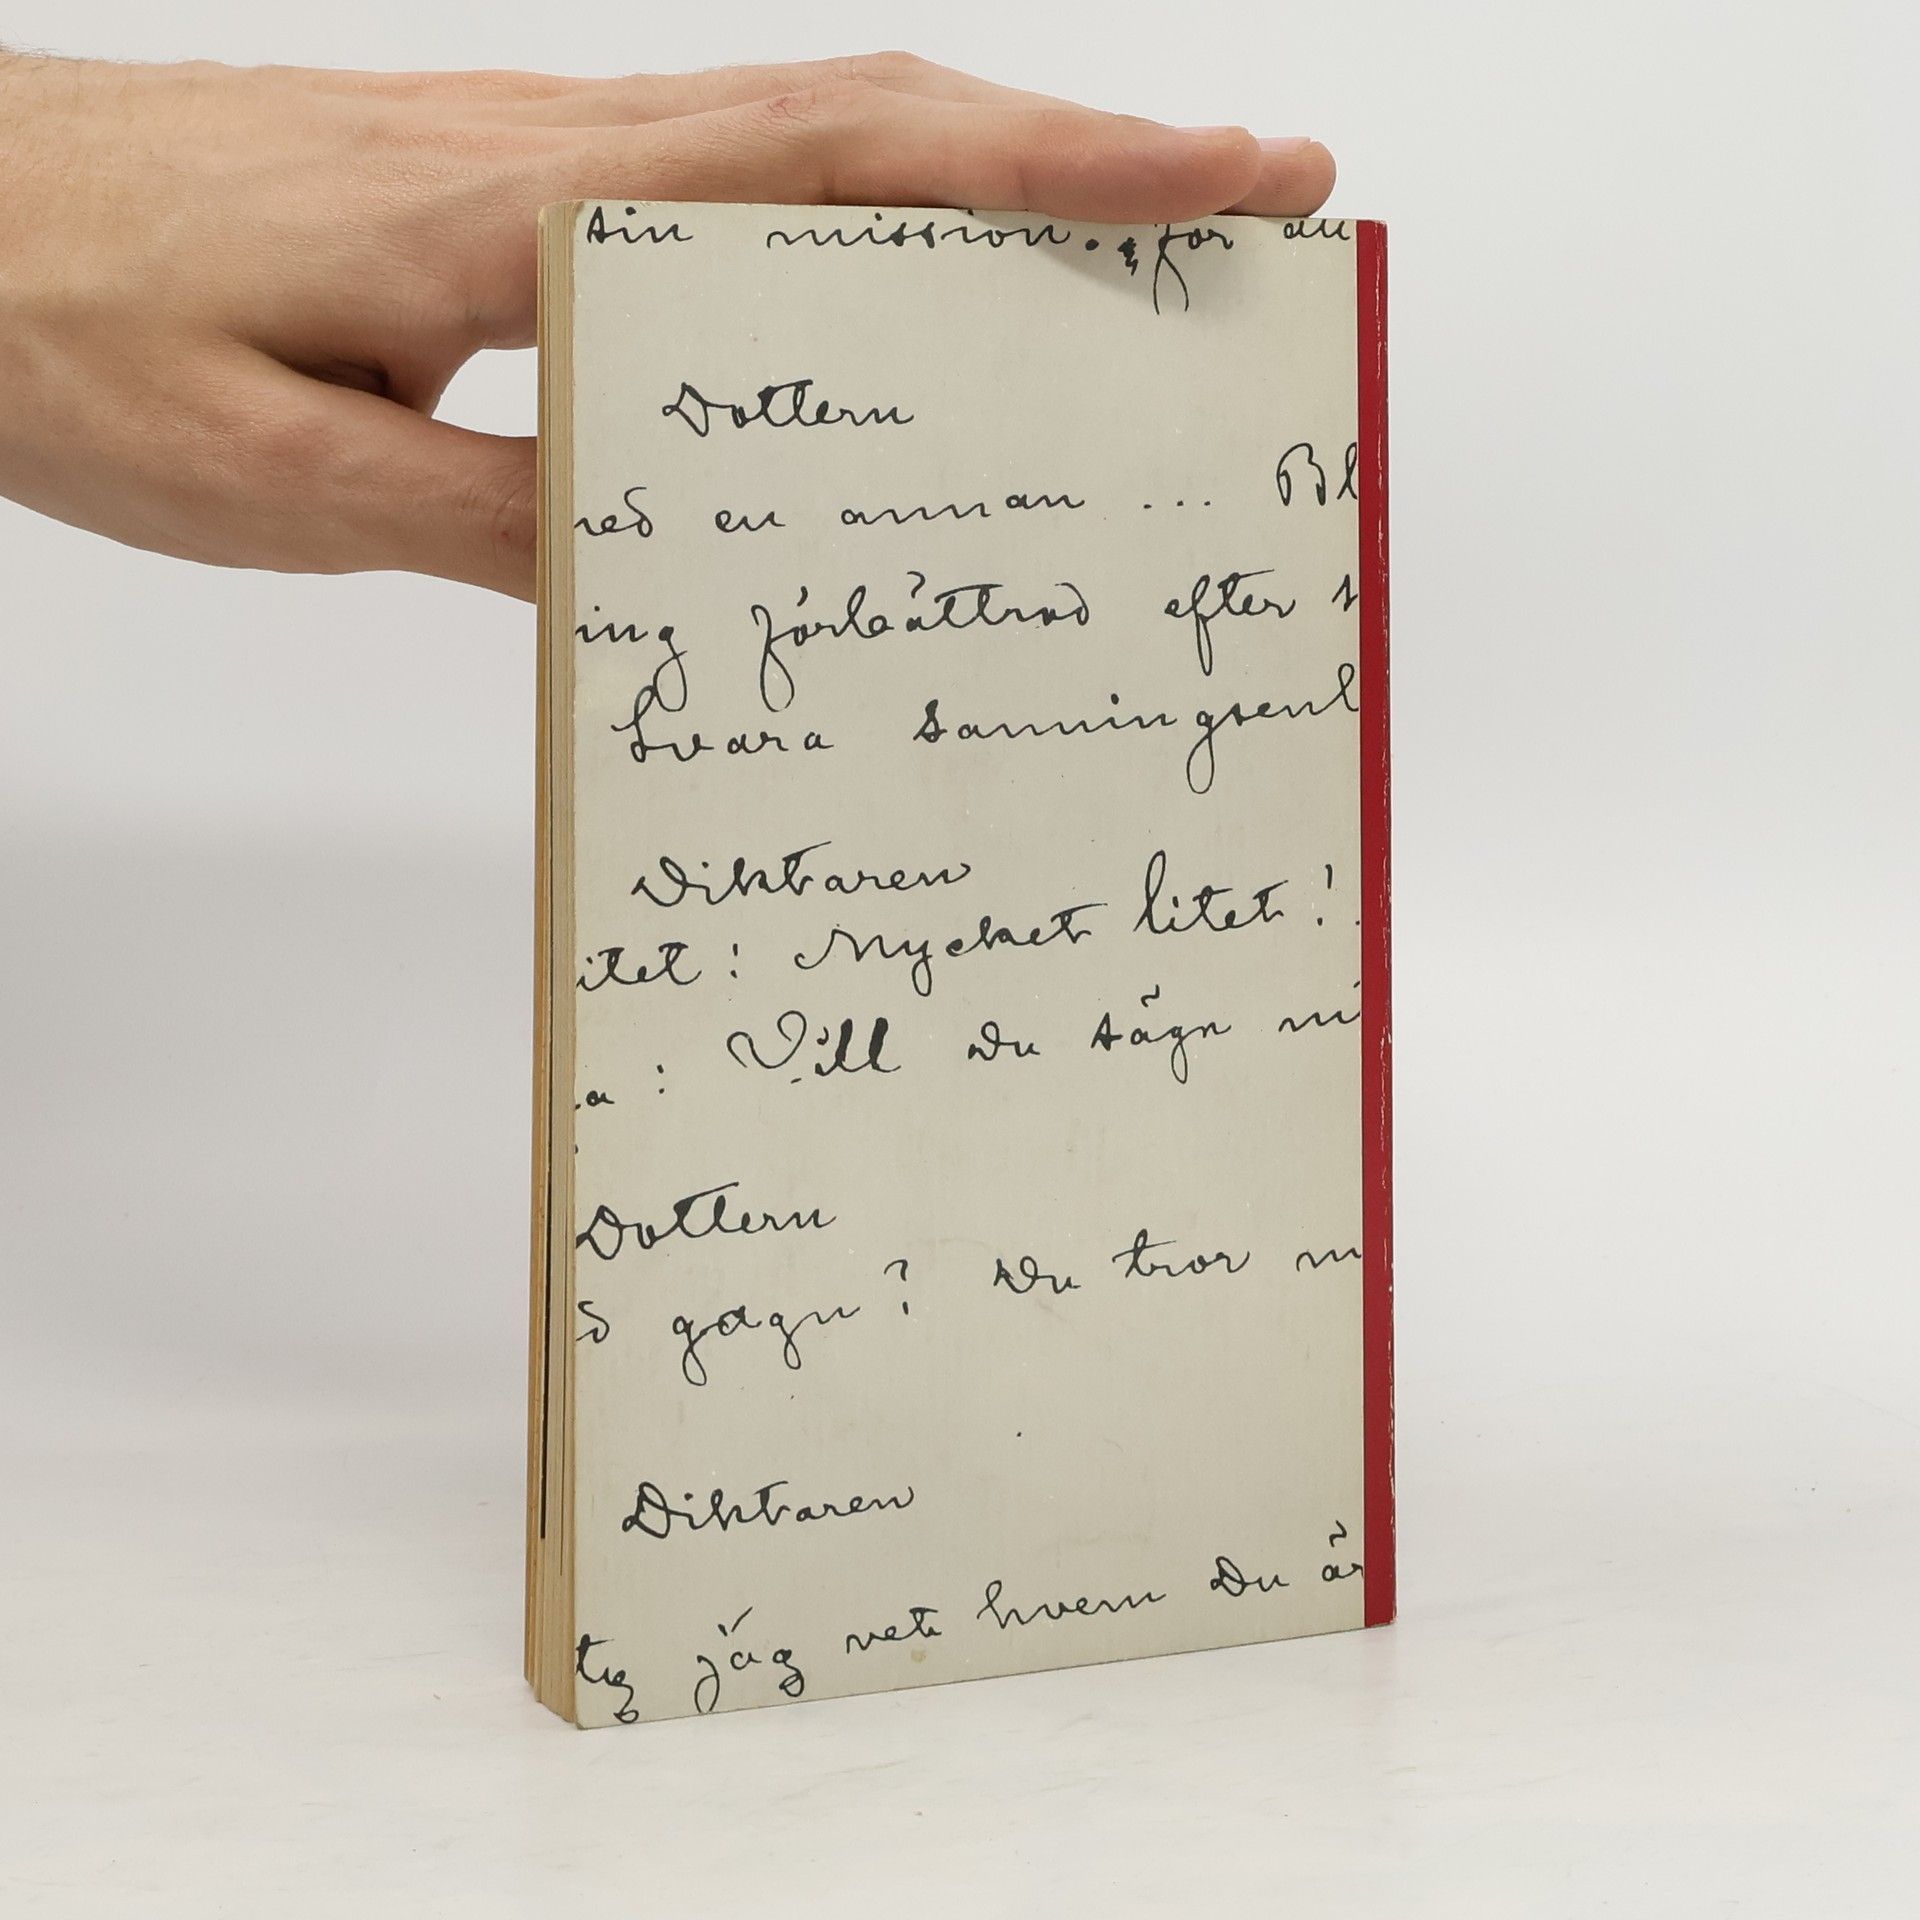 sin mission. för att
Dottern
ned en annan ... Bl
ing förbättrad efter s
Svara sanningsenl
Diktaren
itet! Mycket litet!
a: Vill du säga mi
Dottern
d gagn? Du tror m
Diktaren
tg jag vet hvem Du är